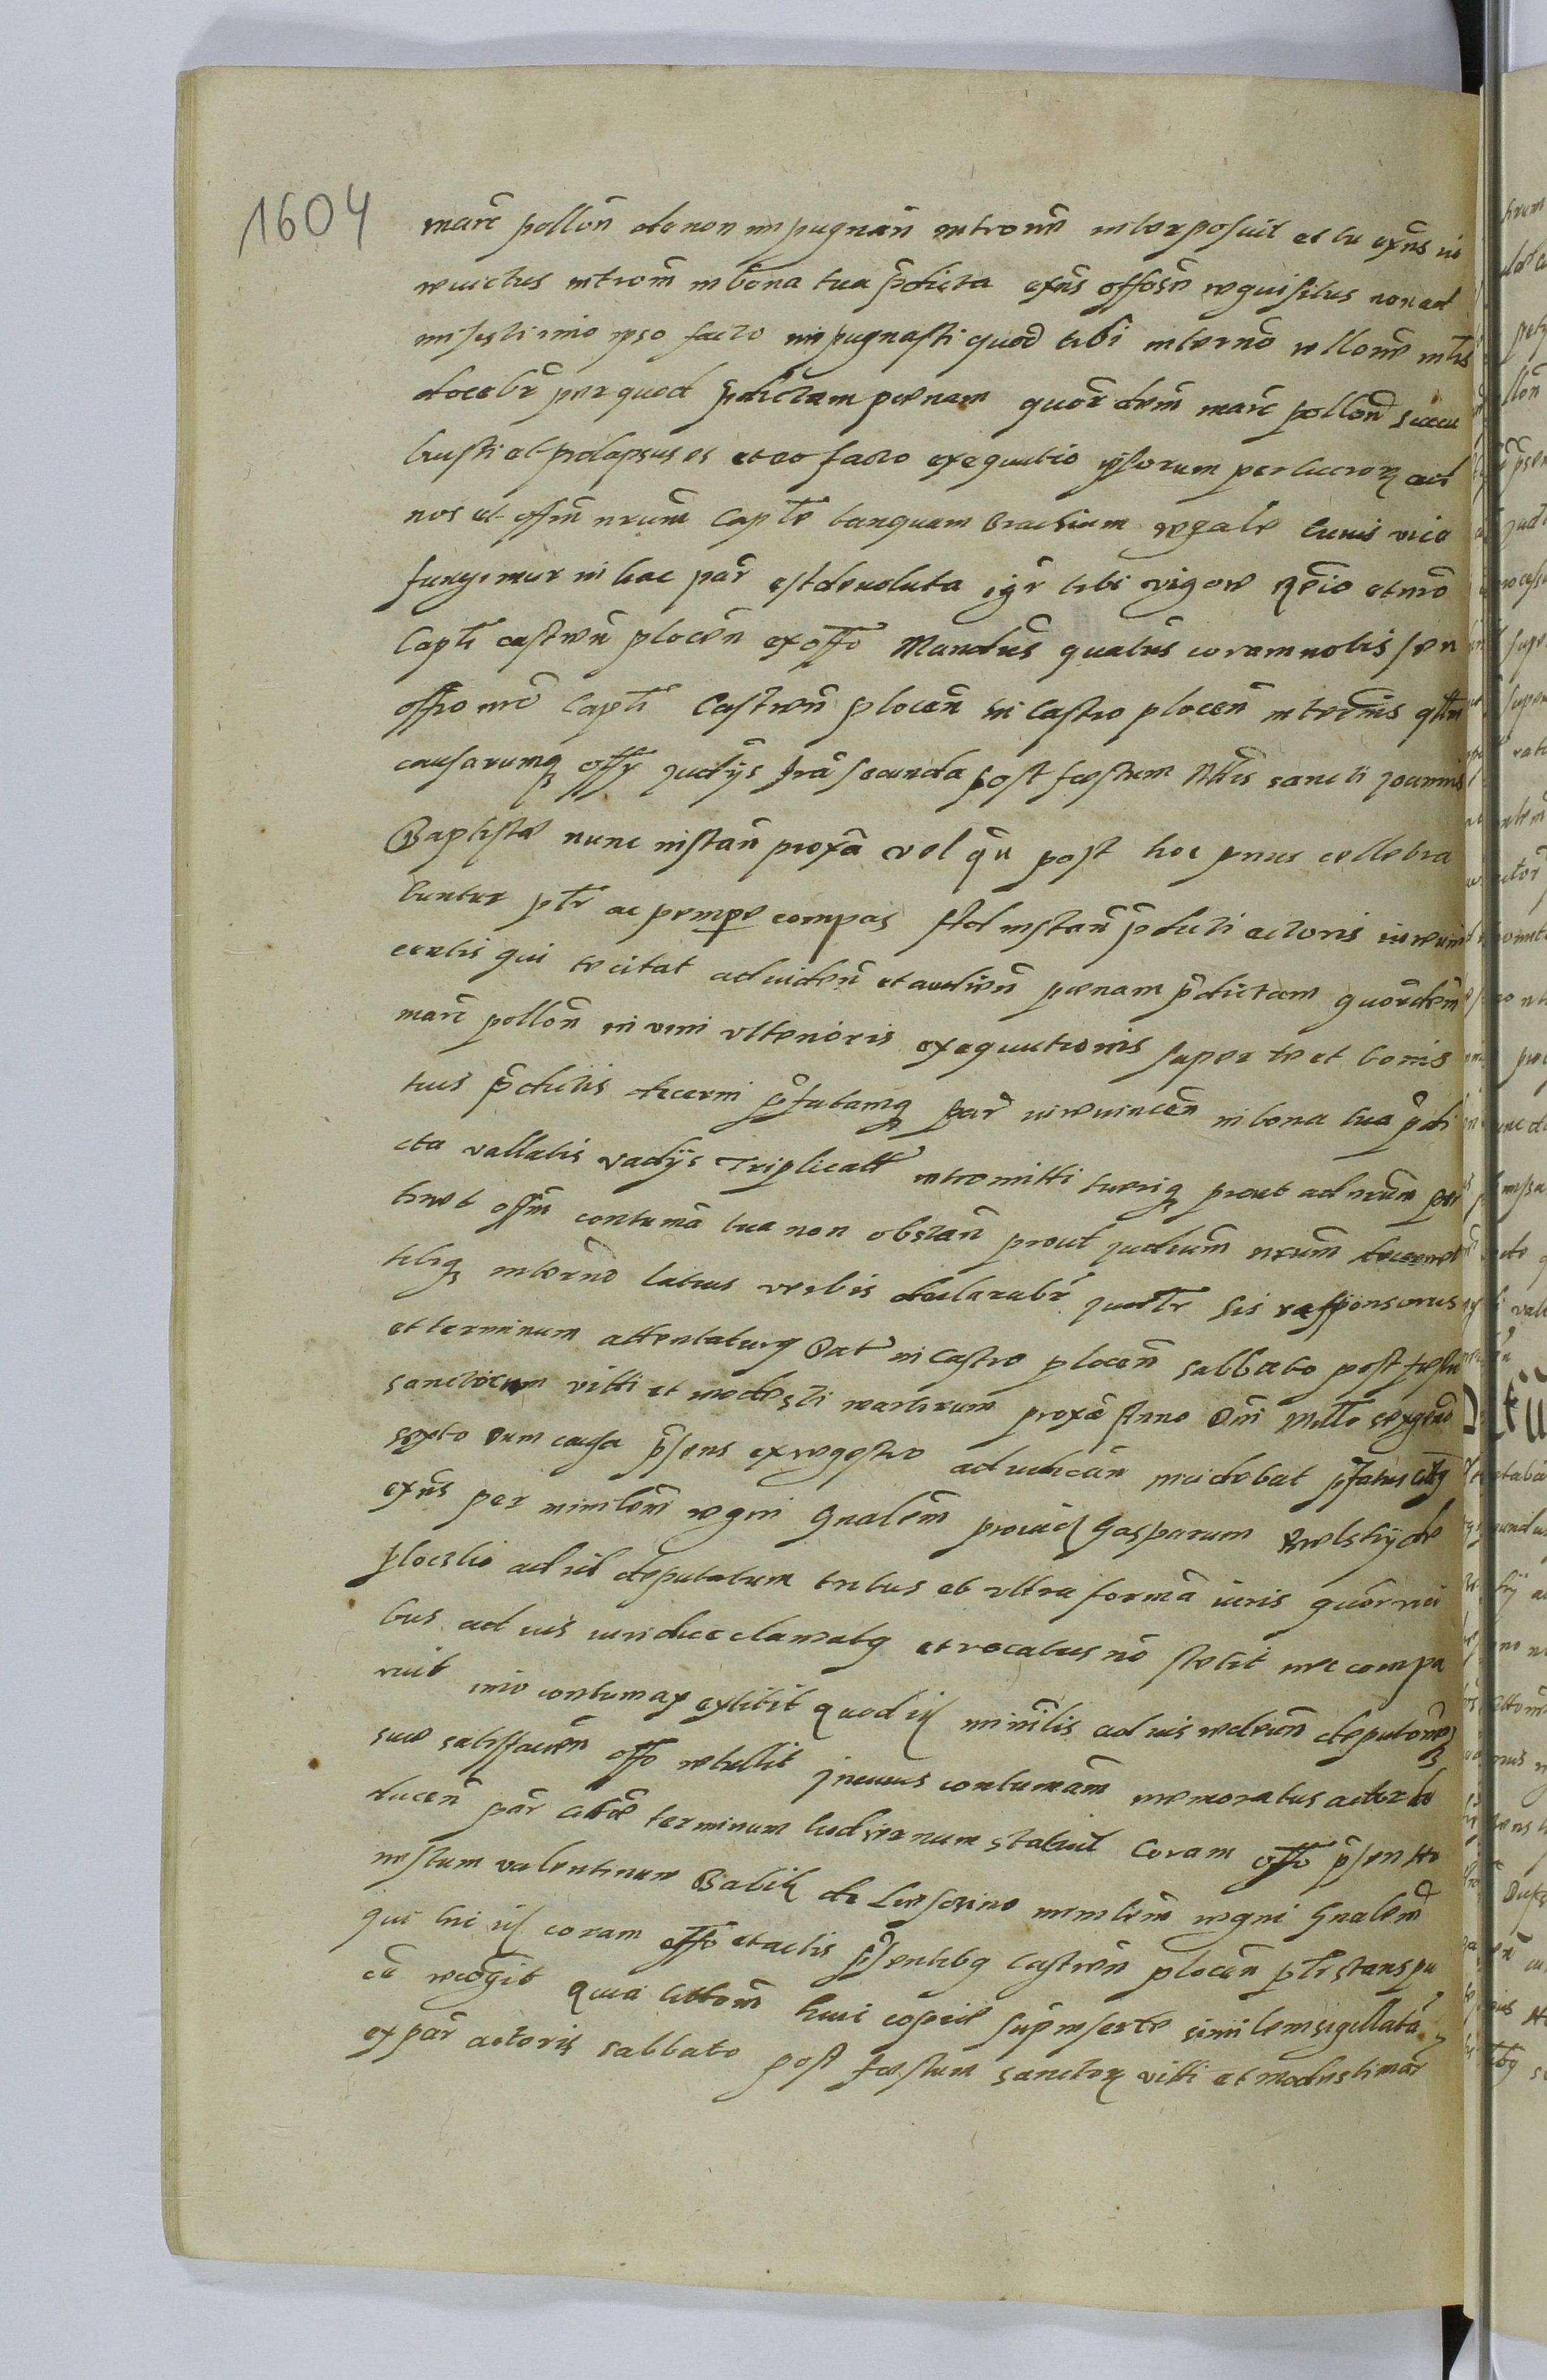 1604
marc pollon de non impugnan introne interposuit et tu exns in
reuictus introm in bona tua pdicta exns offose requisitus non ad
misisti imo ipso facto impugnasti quod tibi interno relloне
docebr per quod pdictam poenam quordem marc pollon succu
buisti et prolapsus es et eo facto exequutio ipsorum per lucrorum ad
nos et offm nrum Capte tanquam Brachium regale cuius vice
fungimur in hac par est deuoluta igr tibi vigore Regio et nro
Capti castren plocen ex offo Mandus quatus coram nobis seu
offo nro Capti Castren plocen in Castro plocen in termis qttn
causarumq offy judijs fra secunda post festum Nttis sancti Joannis
Baptistae nunc instan proxa vel qn post hoc prius cellebra
buntur ptr ac perempe compas Ad instan pdicti actoris iureuin
centis qui te citat ad viden et audien poenam pdictam quordem
marc pollon in vim vlterioris exequutionis super te et bonis
tuis pdictis decerni pfatamq par iureuincen in bona tua pdi
cta vallatis vadijs Triplicatt intromitti tueriq prout ad nrum per
tinet offm contuma tua non obstan prout judium nrum decernet
tibiq interno latius verbis declarabr judtr sis responsurus
et terminum attentaturq Dat in Castro plocen sabbato post festu
sanctorum vitti et modesti martirum proxa Anno Dni Millo sexgeno
sexto dum causa psens ex regestro ad iudican incidebat pfatus citq
exns per ministem regni Gnalem prouid Gasparum de
plocsko ad id deputatum tribus et vltra forma iuris quor vici
bus ad ius iuridice clamatq et vocatus no stetit nec compa
ruit imo contumax extitit quod id ministis ad ius redeun deputoneq
suae satisfacien offo retullit in cuius contumam memoratus actor do
ducen par citae terminum hodiernum statuit Coram offo psen Ho
nestum valentinum Babik de minstem regni Gnalem
qui hic id coram offo et actis psentibq Castren plocen ptr stans pu
ce recogit quia litteram huic copiae supinserte similem sigillata
ex par actoris sabbato post festum sanctorum vitti et modesti mar